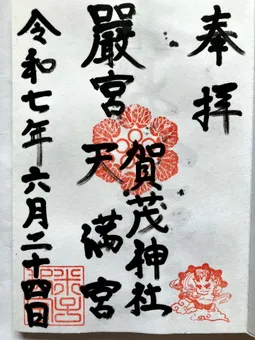 奉拝
賀茂神社
嚴宮天満宮
令和七年六月二十四日